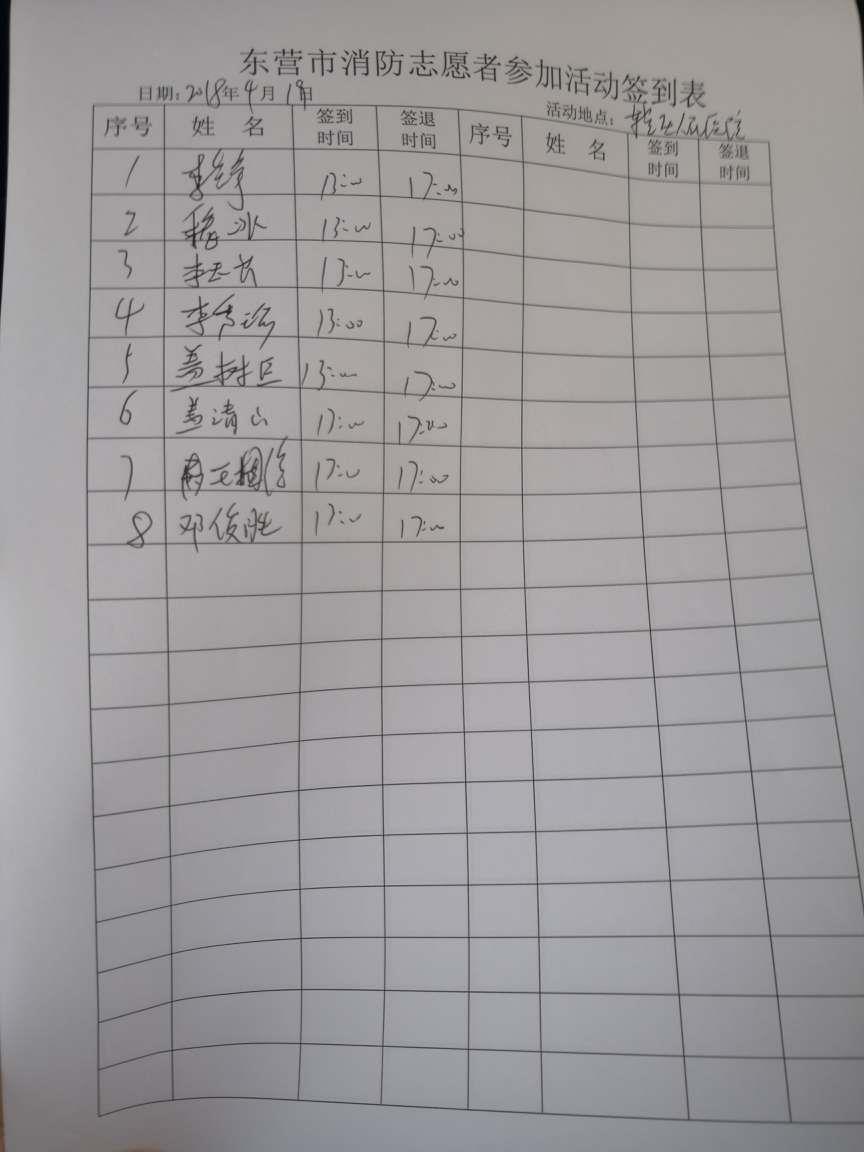 东营市消防志愿者参加活动签到表
日期:2018年4月19日 活动地点:
序号 姓 名 签到时间 签退时间 序号 姓 名 签到时间 签退时间
1 13:00 17:00
2 冰 13:00 17:00
3 李玉长 13:00 17:00
4 李秀 13:00 17:00
5 盖树臣 13:00 17:00
6 盖清山 13:00 17:00
7 13:00 17:00
8 邓俊胜 13:00 17:00